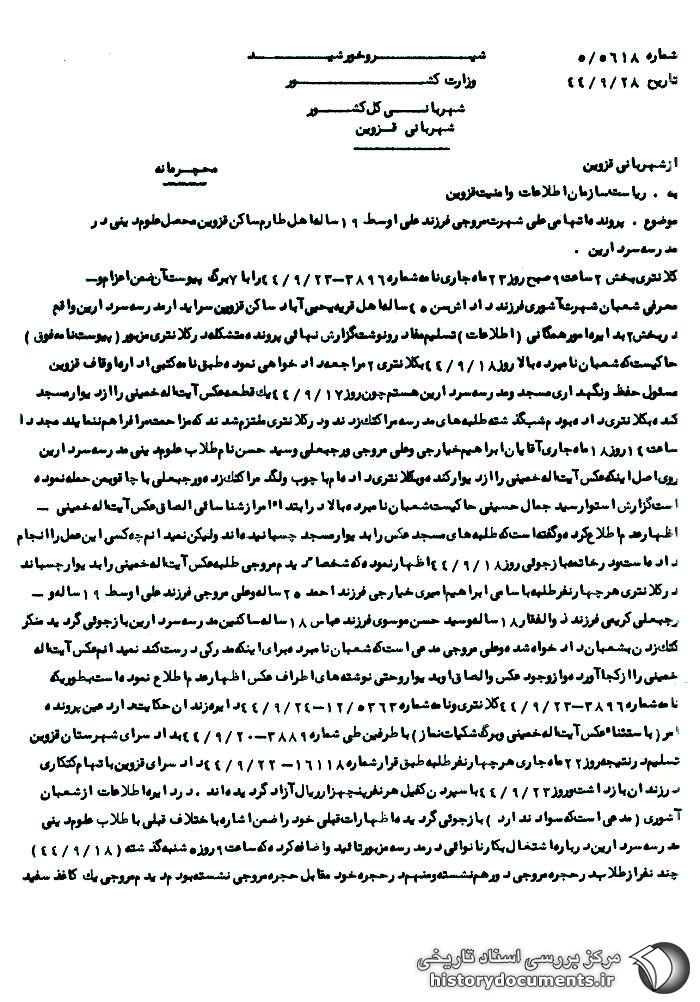 شماره ۵/۵۶۱۸
شیـــروخورشیـــد
تاریخ ۴۴/۹/۲۸
وزارت کشـــور
شهربانـــی کل کشـــور
شهربانی قـزوین
از شهربانی قزوین
محرمانه
به . ریاست سازمان اطلاعات وامنیت قزوین
موضوع . پرونده اتهامی علی شهرت مروجی فرزند علی اوسط ۱۹ ساله اهل طارم ساکن قزوین محصل علوم دینی در
مدرسه سردارین .
کلانتری بخش ۲ ساعت ۹ صبح روز ۲۳ ماه جاری نامه شماره ۳۸۹۶-۴۴/۹/۲۳ را با ۷ برگ پیوست آن ضمن اعزام و-
معرفی شعبان شهرت آشوری فرزند داداش سن ۴۰ ساله اهل قریه یحیی آباد ساکن قزوین سرایدار مدرسه سردارین واقع
در بخش ۲ به دایره امور همگانی (اطلاعات) تسلیم مفاد رونوشت گزارش نهائی پرونده متشکله در کلانتری مزبور (پیوست نامه فوق)
حاکیست که شعبان نامبرده بالا روز ۴۴/۹/۱۸ بکلانتری ۲ مراجعه دادخواهی نموده طبق نامه کتبی اداره اوقاف قزوین
مسئول حفظ ونگهداری مسجد ومدرسه سردارین هستم چون روز ۴۴/۹/۱۷ یك قطعه عکس آیت اله خمینی را از دیوار مسجد
کنده بکلانتری داده بودم شب گذشته طلبه های مدرسه مرا کتك زدند ودر کلانتری ملتزم شدند که مزاحمت مرا فراهم ننمایند مجددا
ساعت ۱۴ روز ۱۸ ماه جاری آقایان ابراهیم خیارجی وعلی مروجی ورجبعلی وسید حسن نام طلاب علوم دینی مدرسه سردارین
روی اصل اینکه عکس آیت اله خمینی را از دیوار کنده وبکلانتری داده ام با چوب ولگد مرا کتك زده ورجبعلی با چاقو بمن حمله نموده
است گزارش استوار سید جمال حسینی حاکیست شعبان نامبرده بالا در ابتدا امر از شناسائی الصاق عکس آیت اله خمینی -
اظهار عدم اطلاع کرده وگفته است که طلبه های مسجد عکس را بدیوار مسجد چسبانیده اند ولیکن نمیدانم چه کسی این عمل را انجام
داده است ودر خاتمه بازجوئی روز ۴۴/۹/۱۸ اظهار نموده که شخصا" دیدم مروجی طلبه عکس آیت اله خمینی را بدیوار چسباند
در کلانتری هر چهار نفر طلبه باسامی ابراهیم امیری خیارجی فرزند احمد ۲۵ ساله وعلی مروجی فرزند علی اوسط ۱۹ ساله و-
رجبعلی کریمی فرزند ذوالفقار ۱۸ ساله وسید حسن موسوی فرزند عباس ۱۸ ساله ساکنین مدرسه سردارین بازجوئی گردید منکر
کتك زدن بشعبان دادخواه شده وعلی مروجی مدعی است که شعبان نامبرده برای اینکه مدرکی درست کند نمیدانم عکس آیت اله
خمینی را از کجا آورده واز وجود عکس والصاق او بدیوار وحتی نوشته های اطراف عکس اظهار عدم اطلاع نموده است بطوریکه
نامه شماره ۳۸۹۶-۴۴/۹/۲۳ کلانتری ونامه شماره ۱۲/۵۳۶۳-۴۴/۹/۲۴ دایره زندان حکایت دارد عین پرونده
امر (باستثناء عکس آیت اله خمینی وبرگ شکیات نماز) با طرفین طی شماره ۳۸۸۹-۴۴/۹/۲۰ بدادسرای شهرستان قزوین
تسلیم در نتیجه روز ۲۲ ماه جاری هر چهار نفر طلبه طبق قرار شماره ۱۶۱۱۸-۴۴/۹/۲۲ دادسرای قزوین باتهام کتکاری
در زندان بازداشت وروز ۴۴/۹/۲۳ با سپردن کفیل هر نفر پنجهزار ریال آزاد گردیده اند . در دایره اطلاعات از شعبان
آشوری (مدعی است که سواد ندارد) بازجوئی گردیده اظهارات قبلی خود را ضمن اشاره باختلاف قبلی با طلاب علوم دینی
مدرسه سردارین درباره اشتغال بکار نانوائی در مدرسه مزبور تائید واضافه کرده که ساعت ۹ روز ۵ شنبه گذشته (۴۴/۹/۱۸)
چند نفر از طلاب در حجره مروجی دور هم نشسته ومنهم در حجره خود مقابل حجره مروجی نشسته بودم دیدم مروجی یك کاغذ سفید
مرکز بررسی اسناد تاریخی
historydocuments.ir